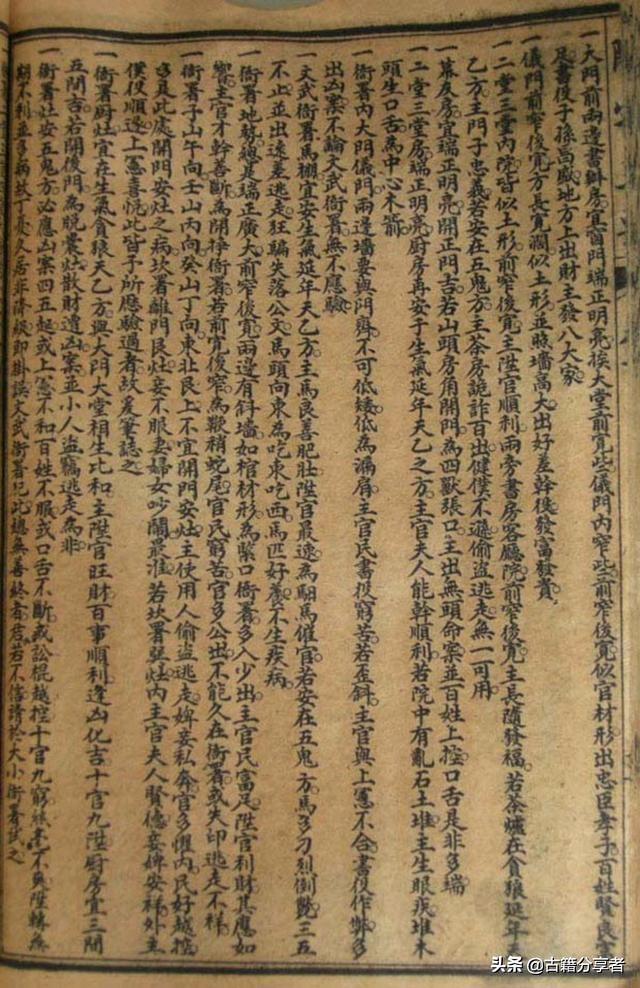 一大門前兩邊書辦房宜窗門端正明亮挨大堂前寬些儀門內窄些前窄後寬似官材形出忠臣孝子百姓賢良官
民書役子孫昌盛地方上出財主發八大家
一儀門前窄後寬方長寬濶似土形並照墻高大出好差幹役發富發貴
一二堂三堂內院皆似土形前窄後寬主陞官順利兩旁書房客廳院前窄後寬主長隨發福若茶爐在貪狼延年天
乙方主門子忠義若安在五鬼方主茶房詭詐百出健僕不遜偷盗逃走無一可用
一幕友房宜端正明亮開正門吉若山頭房角開門為四獸張口主出無頭命案並百姓上控口舌是非多端
一二堂三堂房端正明亮廚房再安于生氣延年天乙之方主官夫人能幹順利若院中有亂石土堆主生眼疾堆木
頭生口舌為中心木箭
一衙署內大門儀門兩邊墻要與門齊不可低矮低為漏肩主官民書役窮苦若歪斜主官與上憲不合書役作弊多
出凶案不論文武衙署無不應驗
一文武衙署馬棚宜安生氣延年天乙方主馬良善肥壯陞官最速為駟馬催官若安在五鬼方馬多刁烈倒斃三五
不止並出逺差逃走狂騙失落公文馬頭向東為吃東吃西馬匹好養不生疾病
一衙署地勢總是端正廣大前窄後寬兩邊有斜墻如棺材形為緊口衙署多入少出主官民富足陞官利財其應如
響主官才幹善斷為開掙衙署若前寬後窄為鞭稍蛇尾官民窮苦官多公出不能久在衙署或失印逃走不祥
一衙署子山午向壬山丙向癸山丁向東北艮上不宜開門安灶主使用人偷盗逃走婢妾私奔官多懼內民好越控
多是此處開門安灶之病坎署離門艮灶妾不服妻婦女吵鬧最准若坎署巽灶內主官夫人賢德妾婢安祥外主
僕役順遂上憲喜悅此皆予所應驗過者故爰筆誌之
一衙署厨灶宜在生氣貪狼天乙方與大門大堂相生比和主陞官旺財百事順利逢凶化吉十官九陞厨房宜三間
五間吉若開後門為脫囊灶散財遭凶案並小人盗竊逃走為非
一衙署灶安五鬼方必應凶案四五起或上憲不和百姓不服或口舌不斷或訟棍越控十官九窮絲毫不爽陞轉無
期不利並多病故丁憂久居非降級即掛誤文武衙署犯此總無善終者君若不信請於大小衙署試之
头条 @古籍分享者